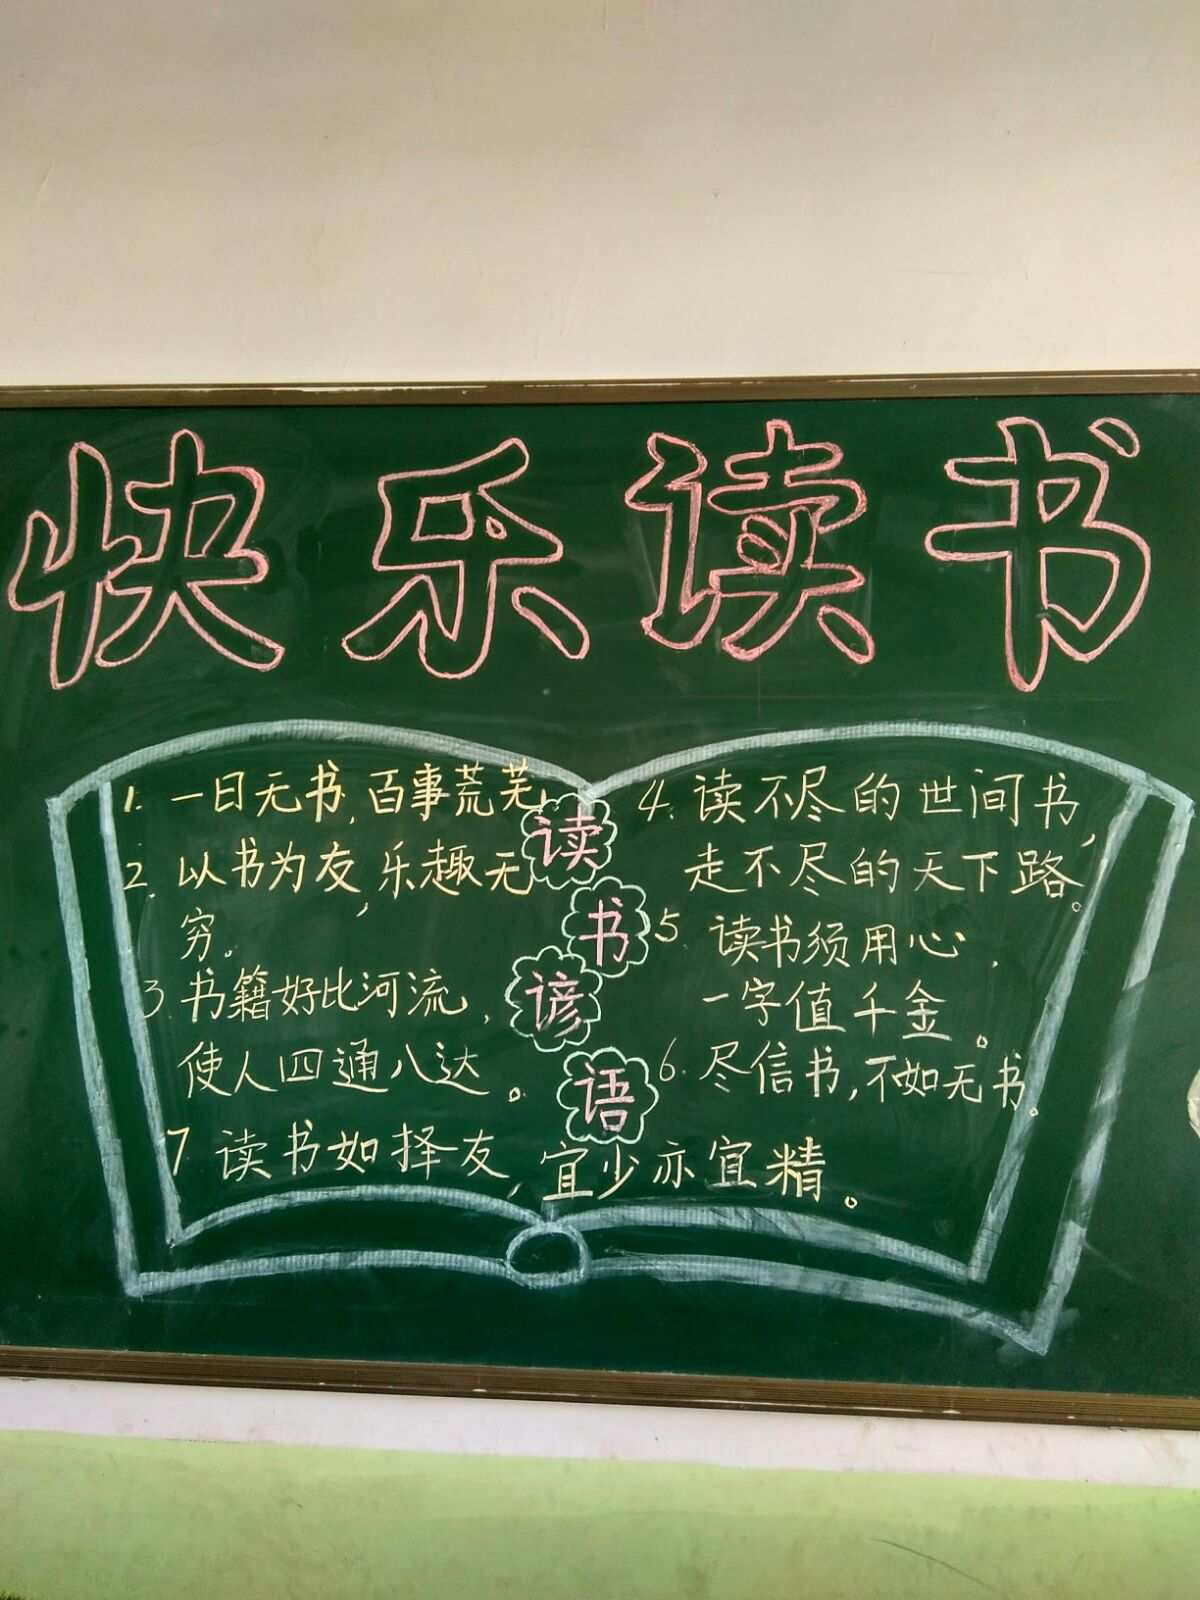 快乐读书
1. 一日无书,百事荒芜.
2. 以书为友,乐趣无
穷。
3. 书籍好比河流,
使人四通八达。
读
书
谚
语
4. 读不尽的世间书,
走不尽的天下路。
5. 读书须用心,
一字值千金。
6. 尽信书,不如无书。
7 读书如择友,宜少亦宜精。